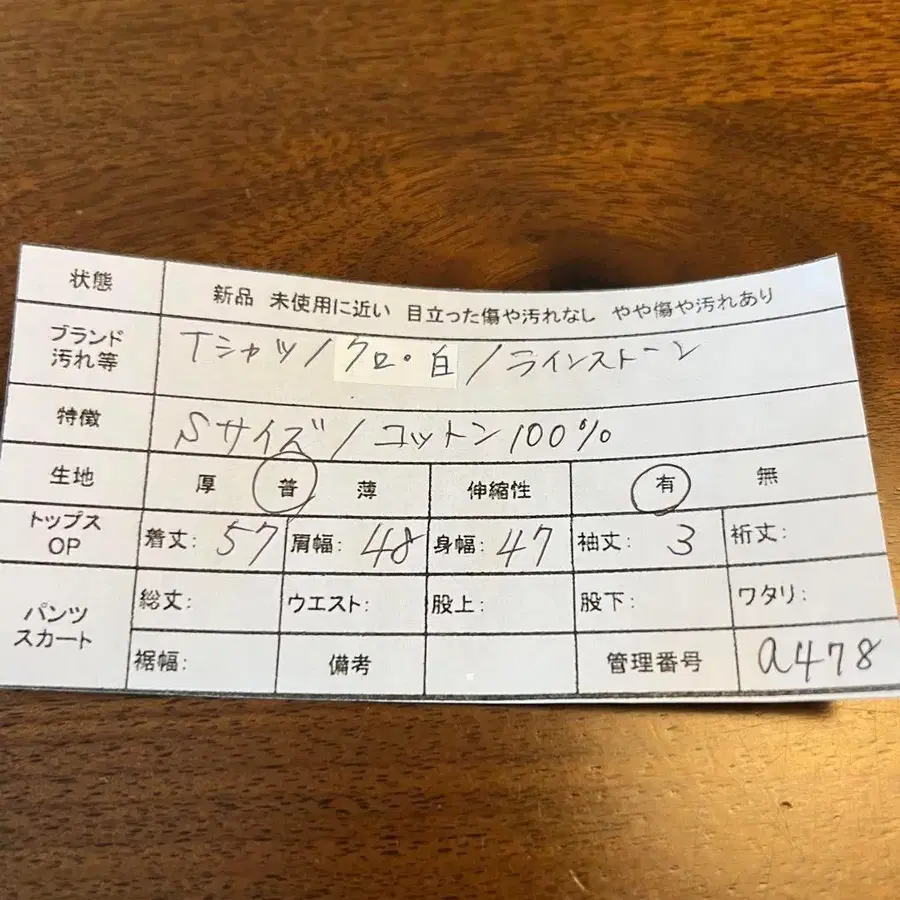 状態 新品 未使用に近い 目立った傷や汚れなし やや傷や汚れあり
ブランド
汚れ等 Tシャツ/クロ・白/ラインストーン
特徴 Sサイズ/コットン100%
生地 厚 普 薄 伸縮性 有 無
トップス
OP 着丈: 57 肩幅: 48 身幅: 47 袖丈: 3 裄丈:
パンツ
スカート 総丈: ウエスト: 股上: 股下: ワタリ:
裾幅: 備考 管理番号 a478